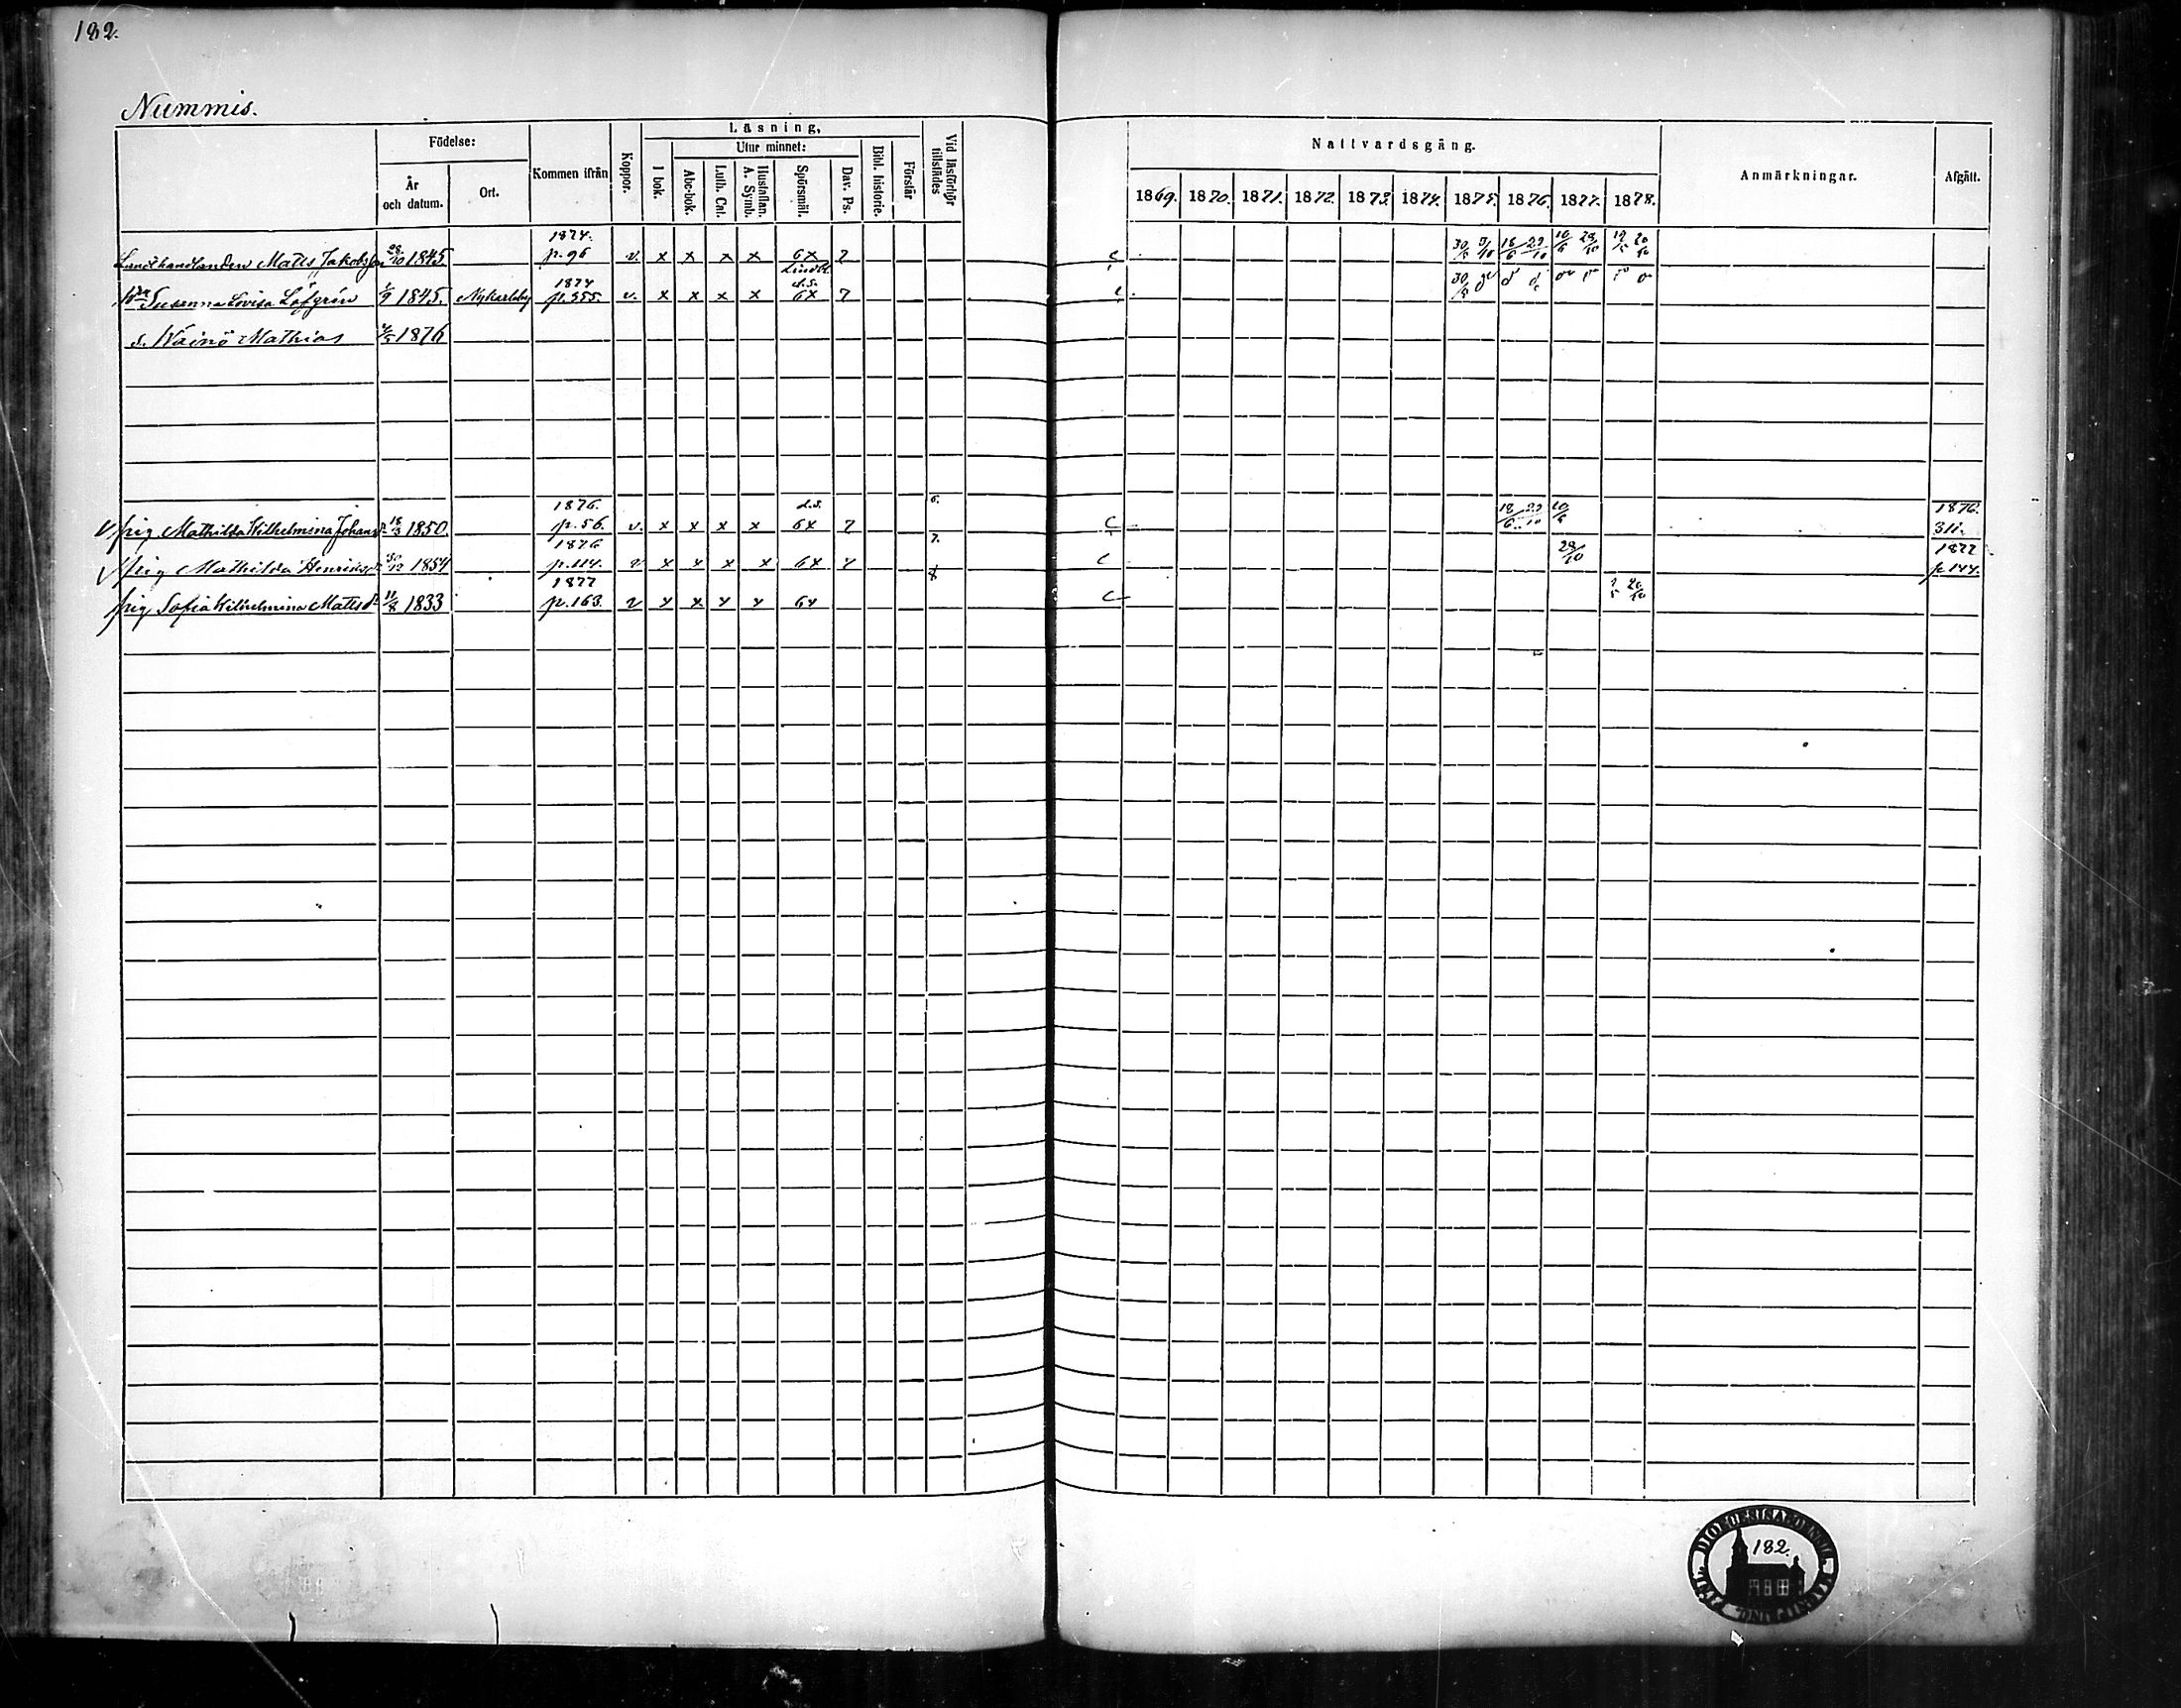 182.
Nummis.
Födelse:
År och datum.
Ort.
Kommen ifrån
Koppor.
Läsning,
I bok.
Utur minnet:
Abc-bok.
Luth. Cat.
Hustaflan. A. Symb.
Spörsmål.
Dav. Ps.
Bibl. historie.
Förstår
Vid läsförhör tillstädes
Nattvardsgång.
1869. 1870. 1871. 1872. 1873. 1874. 1875. 1876. 1877. 1878.
Anmärkningar.
Afgått.
1874.
Landthandlanden Matts Jakobsson 28/10 1845 p. 96 v. x x x x 6x 7 c 30/5 3/10 18/6 29/10 10/6 28/10 19/5 20/10
Lindbl.
1874 d.s.
Susanna Lovisa Löfgrén 1/9 1845. Nykarleby p. 355. v. x x x x 6x 7 c 30/5
s. Wäinö Mathias 1876
1876. d.s. 6. 18/6 29/10 10/6 1876.
pig. Mathilda Wilhelmina Johansdr 18/3 1850. p. 56. v. x x x x 6x 7 c 311.
1876 7. 28/10 1877
pig Mathilda Henriksdr 30/12 1854 p. 114. v x x x x 6x 7 c p 144.
1877 8 20/10
pig. Sofia Wilhelmina Mattsdr 11/8 1833 p. 163. v x x x x 6x c
182.